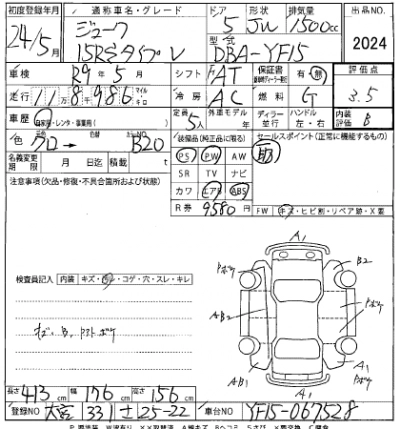 初度登録年月 通称車名・グレード ドア 形状 排気量 出品NO.
24/5月 ジューク 5 JW 1500cc
15RX タイプV 型式 2024
DBA-YF15
車検 R9年5月 シフト FAT 保証書 有 無 評価点
走行 118,986 マイル キロ 冷房 AC 燃料 G 3.5
車歴 自家用・レンタ・事業用 定員 5人 外車モデル 年 ディーラー 並行 ハンドル 左・右 内装評価 B
色 クロ → B20 装備品(純正品に限る) セールスポイント(正常に機能するもの)
名義変更期限 月 日迄 積載 t PS PW AW 取
SR TV ナビ
注意事項(欠品・修復・不具合箇所および状態) カワ エアB ABS
R券 9580円 FW キズ・ヒビ割・リペア跡・X要
A1
検査員記入 内装 キズ・コゲ・穴・スレ・キレ
B2
AB2
AB1
A1
長さ 413cm 幅 176cm 高さ 156cm
登録NO 大宮 331 25-22 車台NO YF15-067528